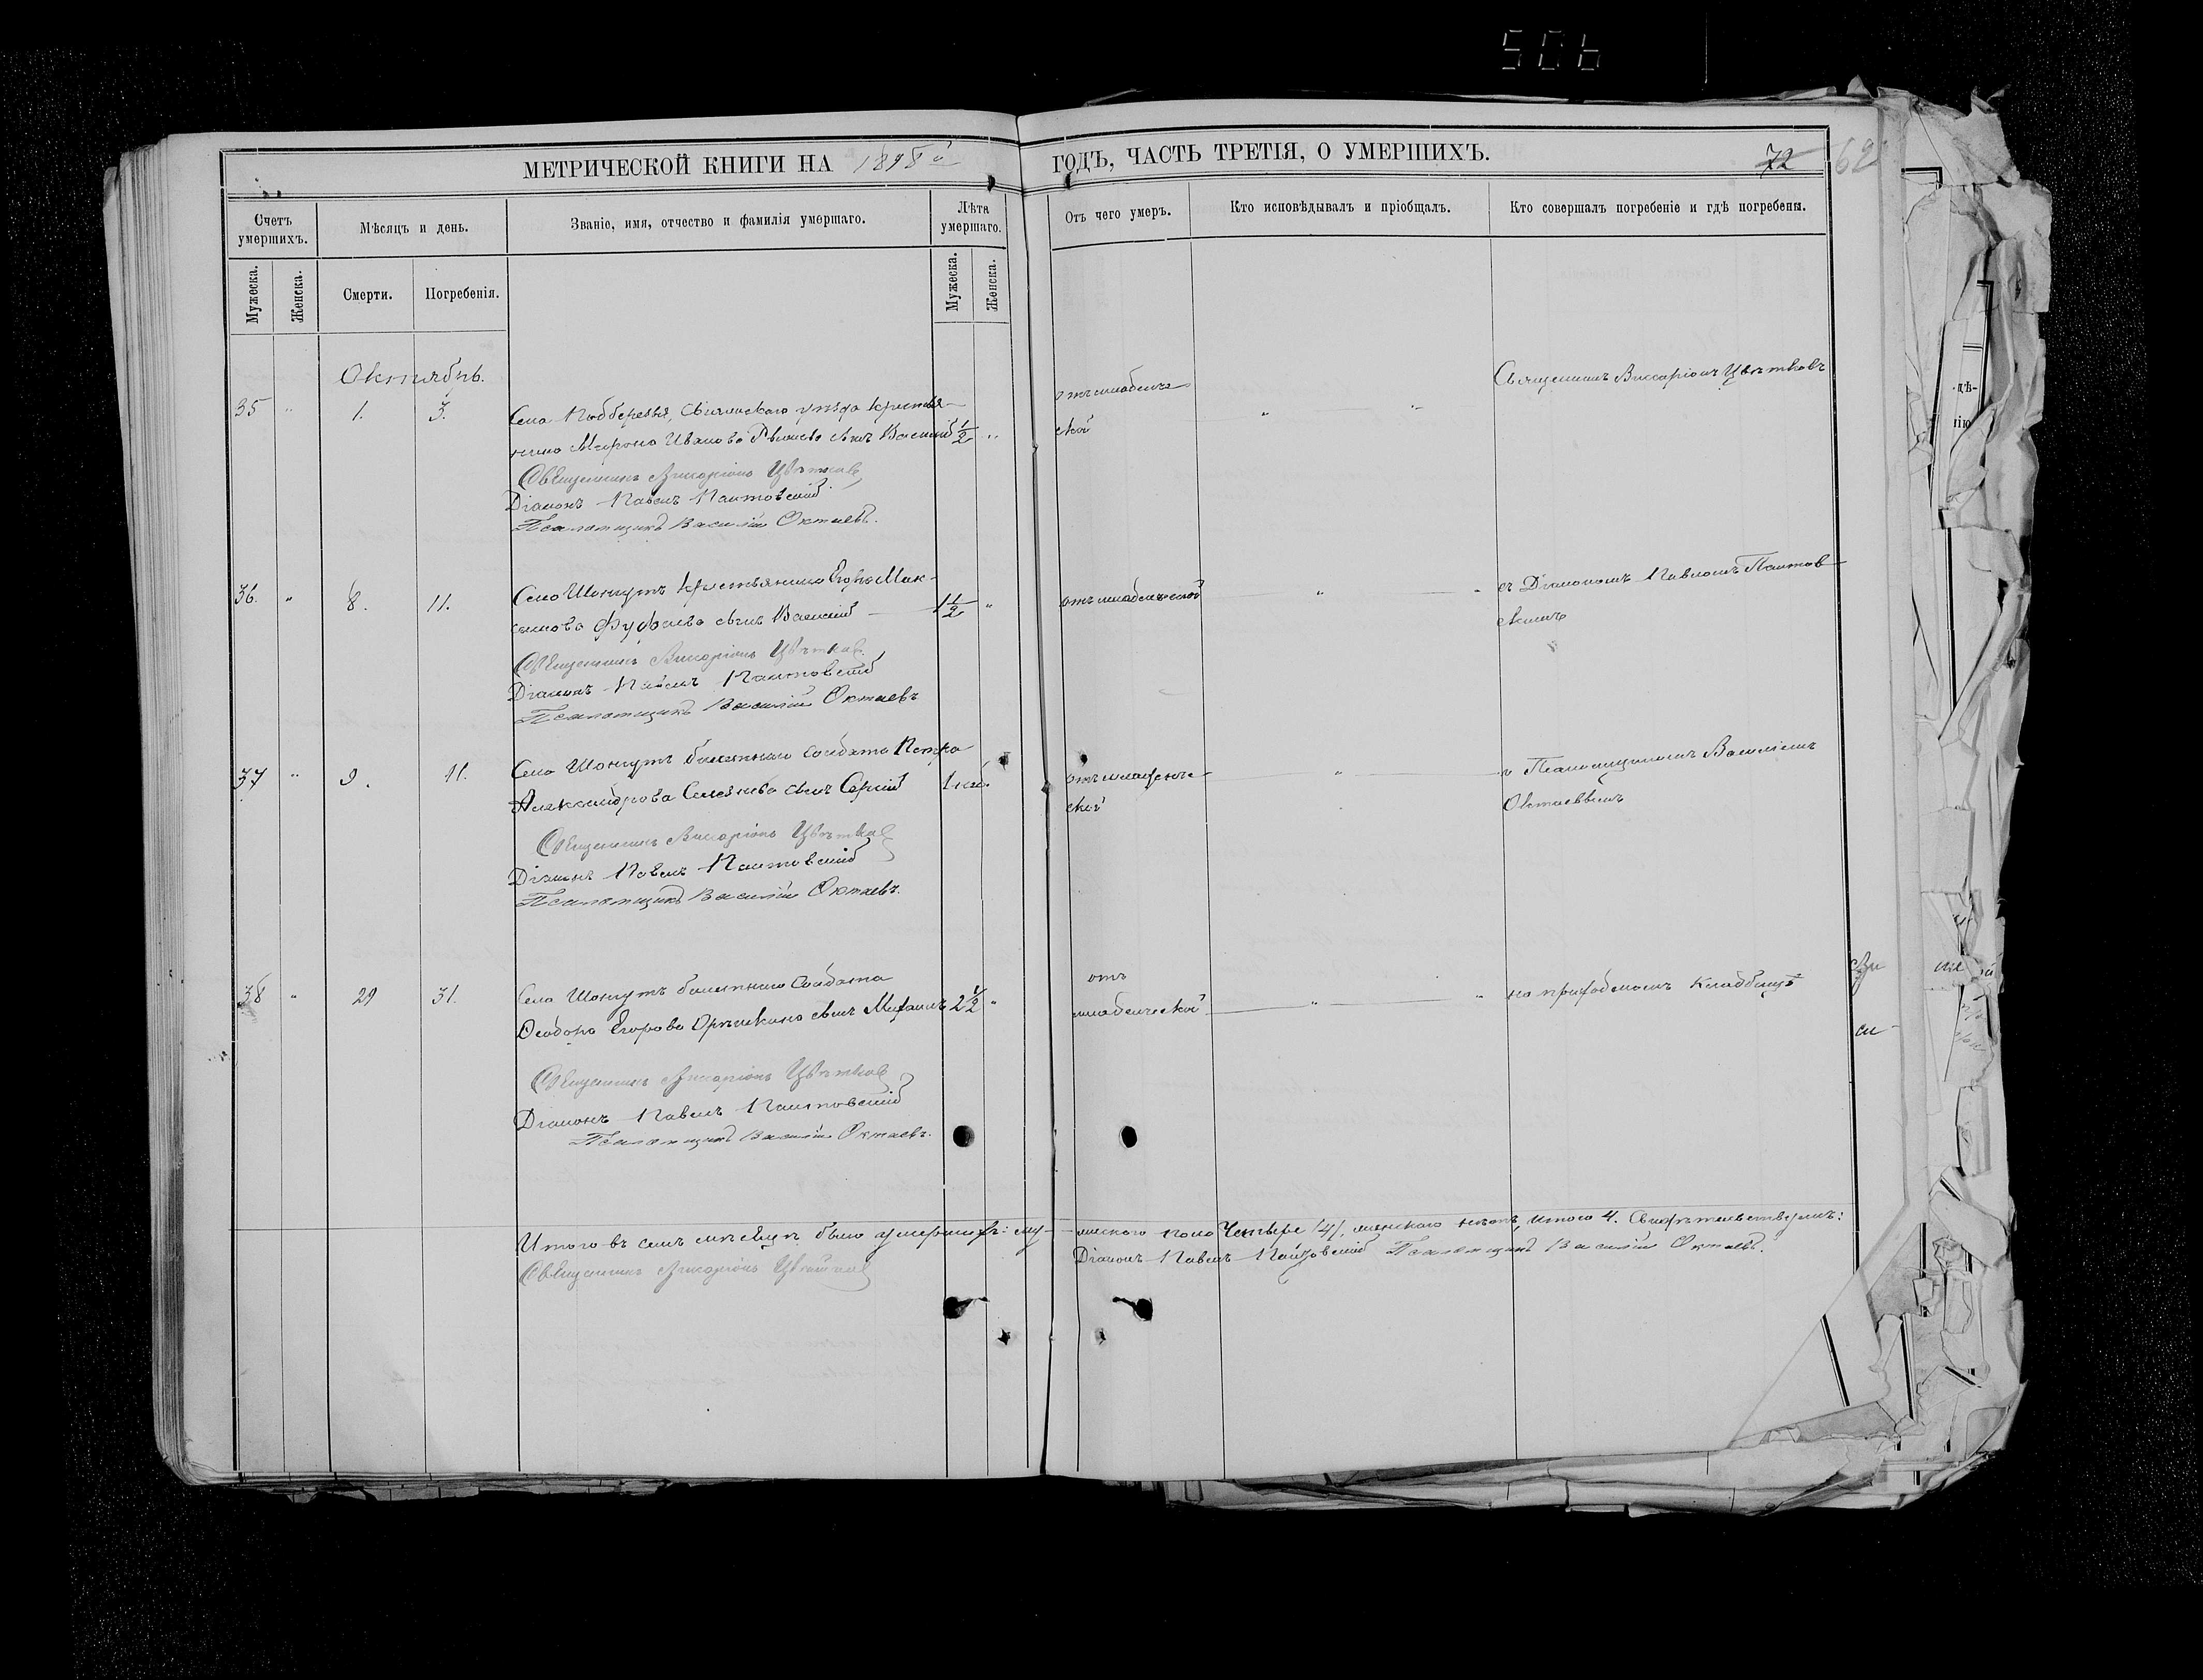 506
МЕТРИЧЕСКОЙ КНИГИ НА 1898й ГОДЪ, ЧАСТЬ ТРЕТІЯ, О УМЕРШИХЪ.
72
62
Счетъ умершихъ.
Мѣсяцъ и день.
Званіе, имя, отчество и фамилія умершаго.
Лѣта умершаго.
Отъ чего умеръ.
Кто исповѣдывалъ и пріобщалъ.
Кто совершалъ погребеніе и гдѣ погребены.
Мужеска.
Женска.
Смерти.
Погребенія.
Мужеска.
Женска.
Октябрь.
35 " 1. 3.
Села Подберезья, Свіяжскаго уѣзда крестья-
нина Мирона Иванова сынъ Василій 1/2 "
отъ младенче-
ской
Священникъ Виссаріонъ Цвѣтковъ
Священникъ Виссаріонъ Цвѣтковъ
Діаконъ Павелъ
Псаломщикъ Василій Октаевъ.
36. " 8. 11.
Села Шонгутъ крестьянина Егора Мак-
симова сынъ Василій 1 1/2 "
отъ младенческой
съ Діакономъ Павломъ
Священникъ Виссаріонъ Цвѣтковъ
Діаконъ Павелъ
Псаломщикъ Василій Октаевъ
37 " 9. 11.
Села Шонгутъ билетнаго солдата Петра
Александрова Селезнева сынъ Сергій
отъ младенче-
ской
и Псаломщикомъ Василіемъ
Октаевымъ
Священникъ Виссаріонъ Цвѣтковъ
Діаконъ Павелъ
Псаломщикъ Василій Октаевъ.
38 " 29 31.
Села Шонгутъ билетнаго солдата
Ѳеодора Егорова Орѣшкина сынъ Михаилъ 2 1/2 "
отъ
младенческой
на приходскомъ кладбищѣ
Священникъ Виссаріонъ Цвѣтковъ
Діаконъ Павелъ
Псаломщикъ Василій Октаевъ.
Итого въ семъ мѣсяцѣ было умершихъ: му-
жескаго пола четыре /4/, женскаго нѣтъ, итого 4. Свидѣтельствуемъ:
Священникъ Виссаріонъ Цвѣтковъ
Діаконъ Павелъ Псаломщикъ Василій Октаевъ.